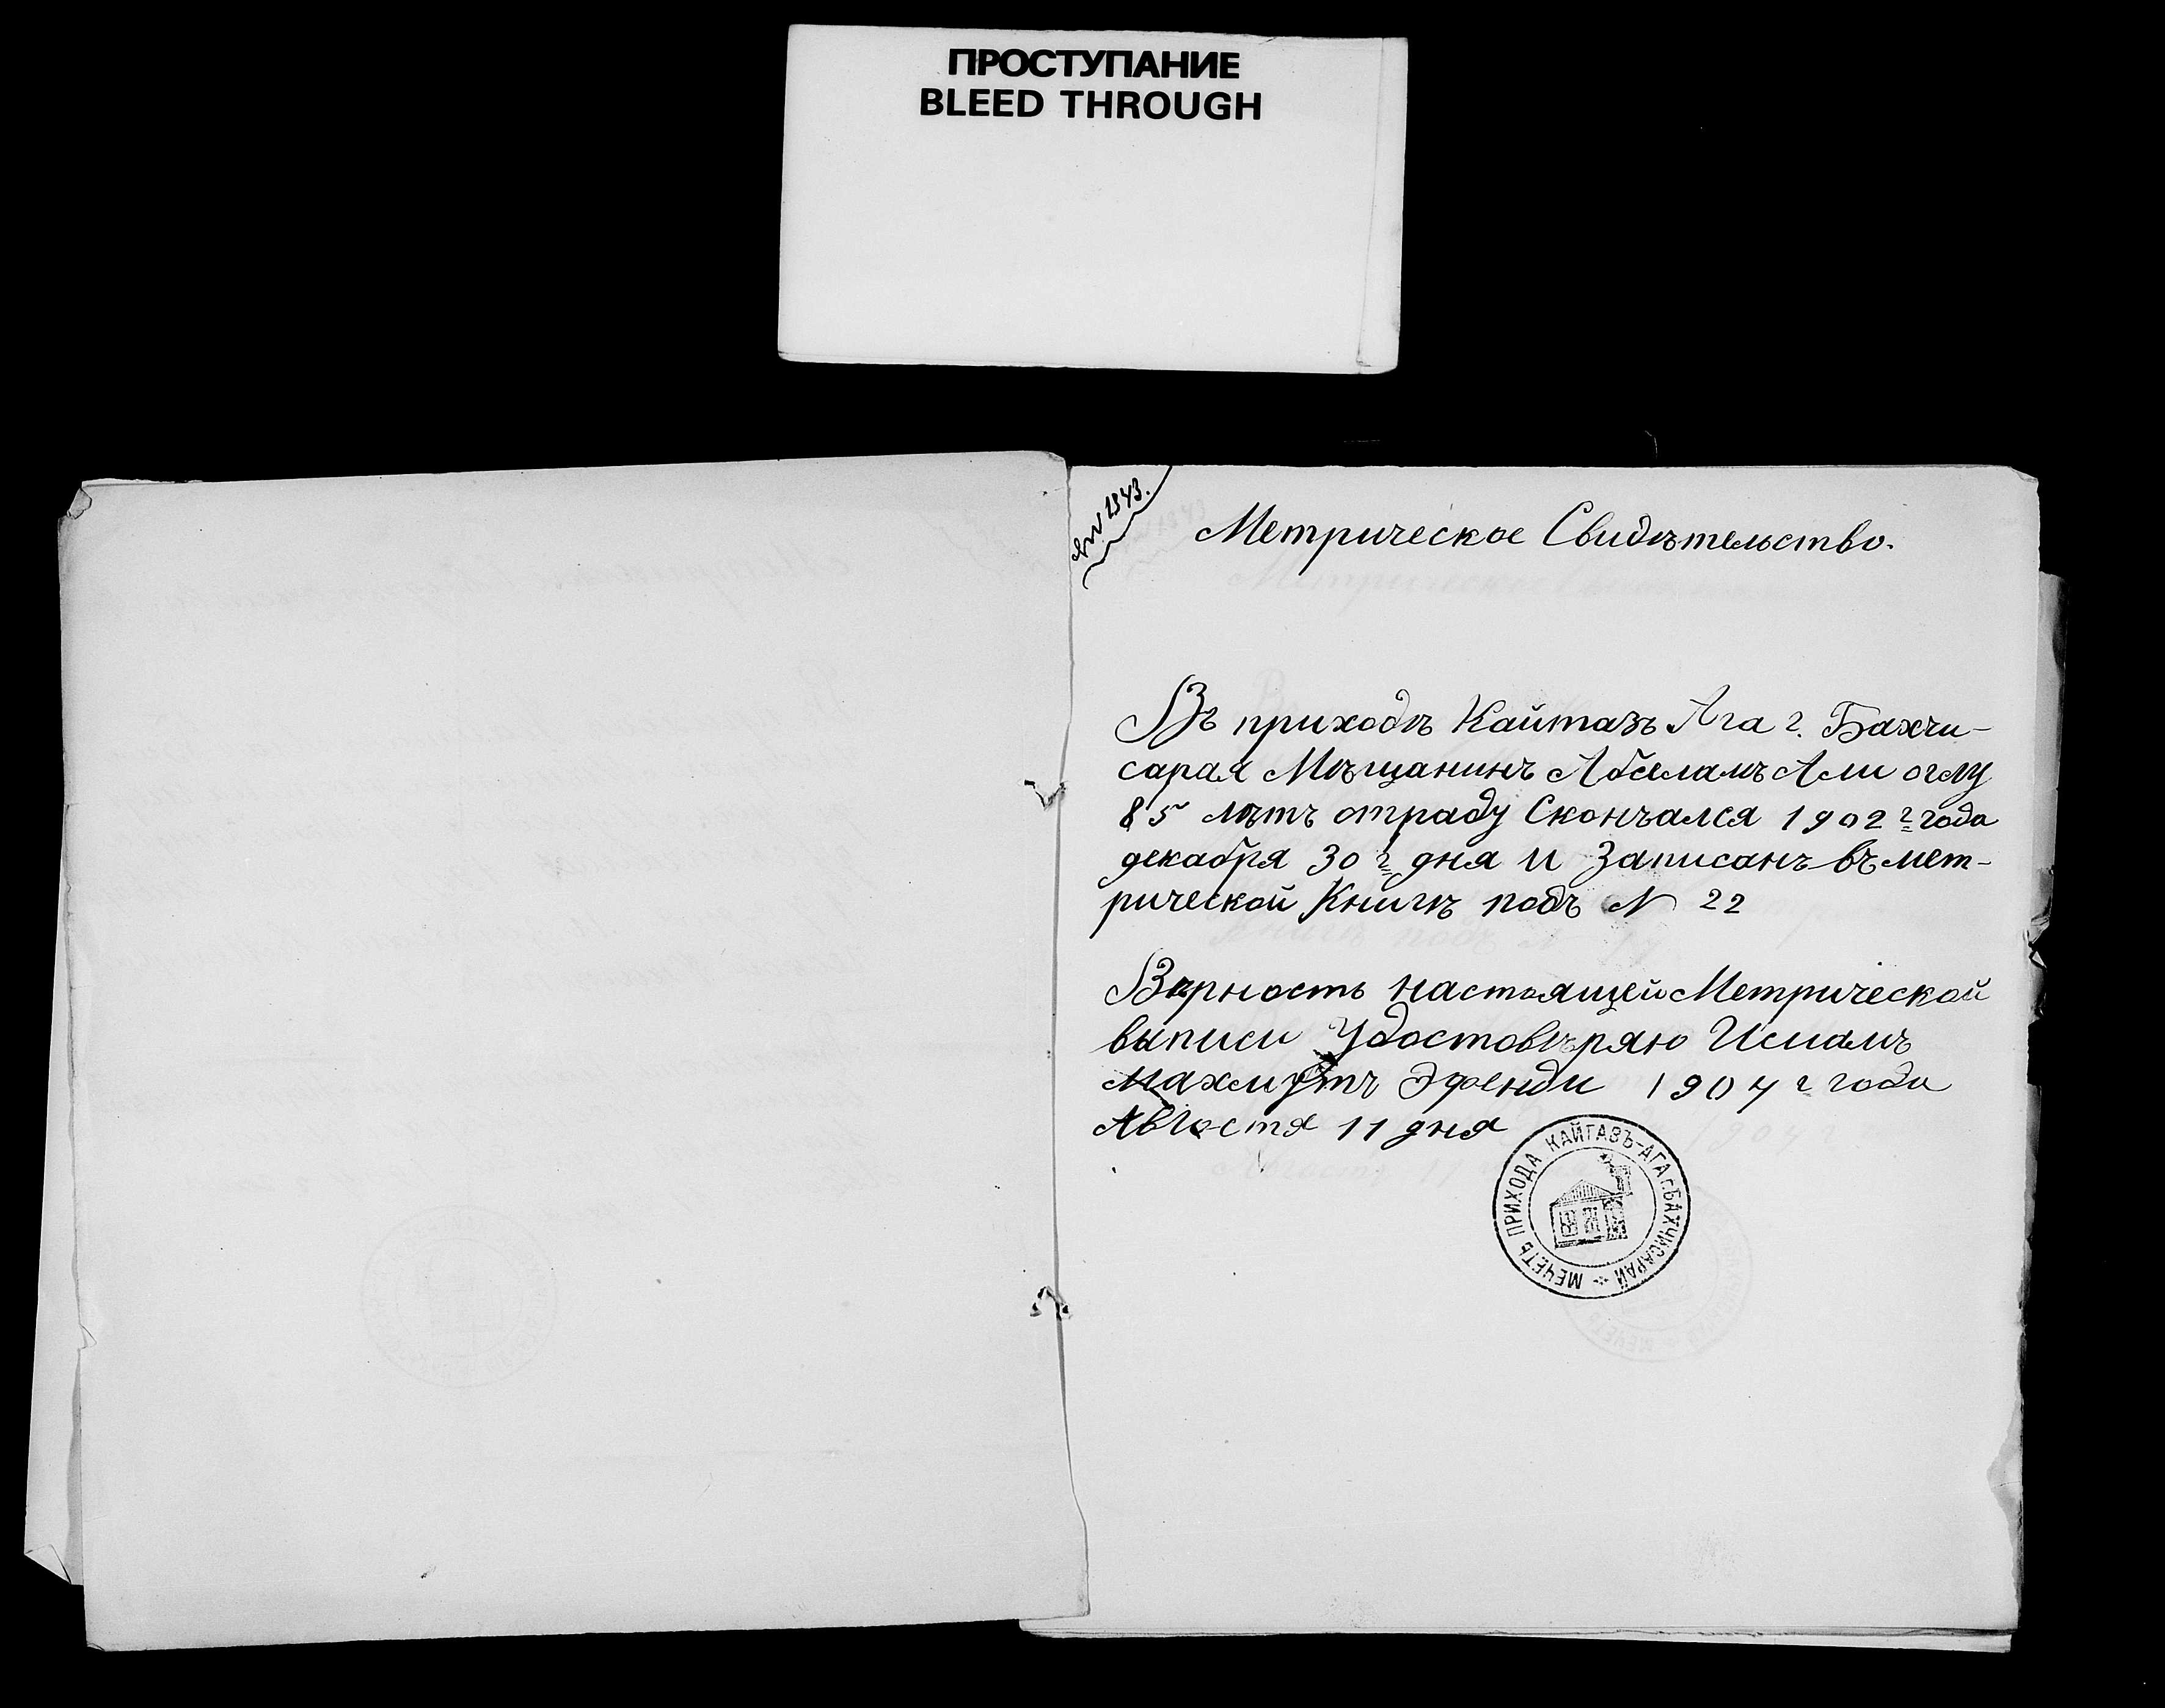 ПРОСТУПАНИЕ
BLEED THROUGH
N 1343.
Метрическое Свидѣтельство.
Въ приходѣ Кайтазъ Ага г. Бахчи-
сарая Мѣщанинъ Абселамъ Али оглу
85 лѣтъ отраду Скончался 1902 г года
декабря 30 г дня и Записанъ въ мет-
рической Книгѣ подъ N 22
Вѣрность настоящей Метрической
выписи Удостовѣряю Имамъ
Махмутъ Эфенди 1904 г года
Августа 11 дня
МЕЧЕТЬ ПРИХОДА КАЙТАЗЪ-АГА Г. БАХЧИСАРАЙ